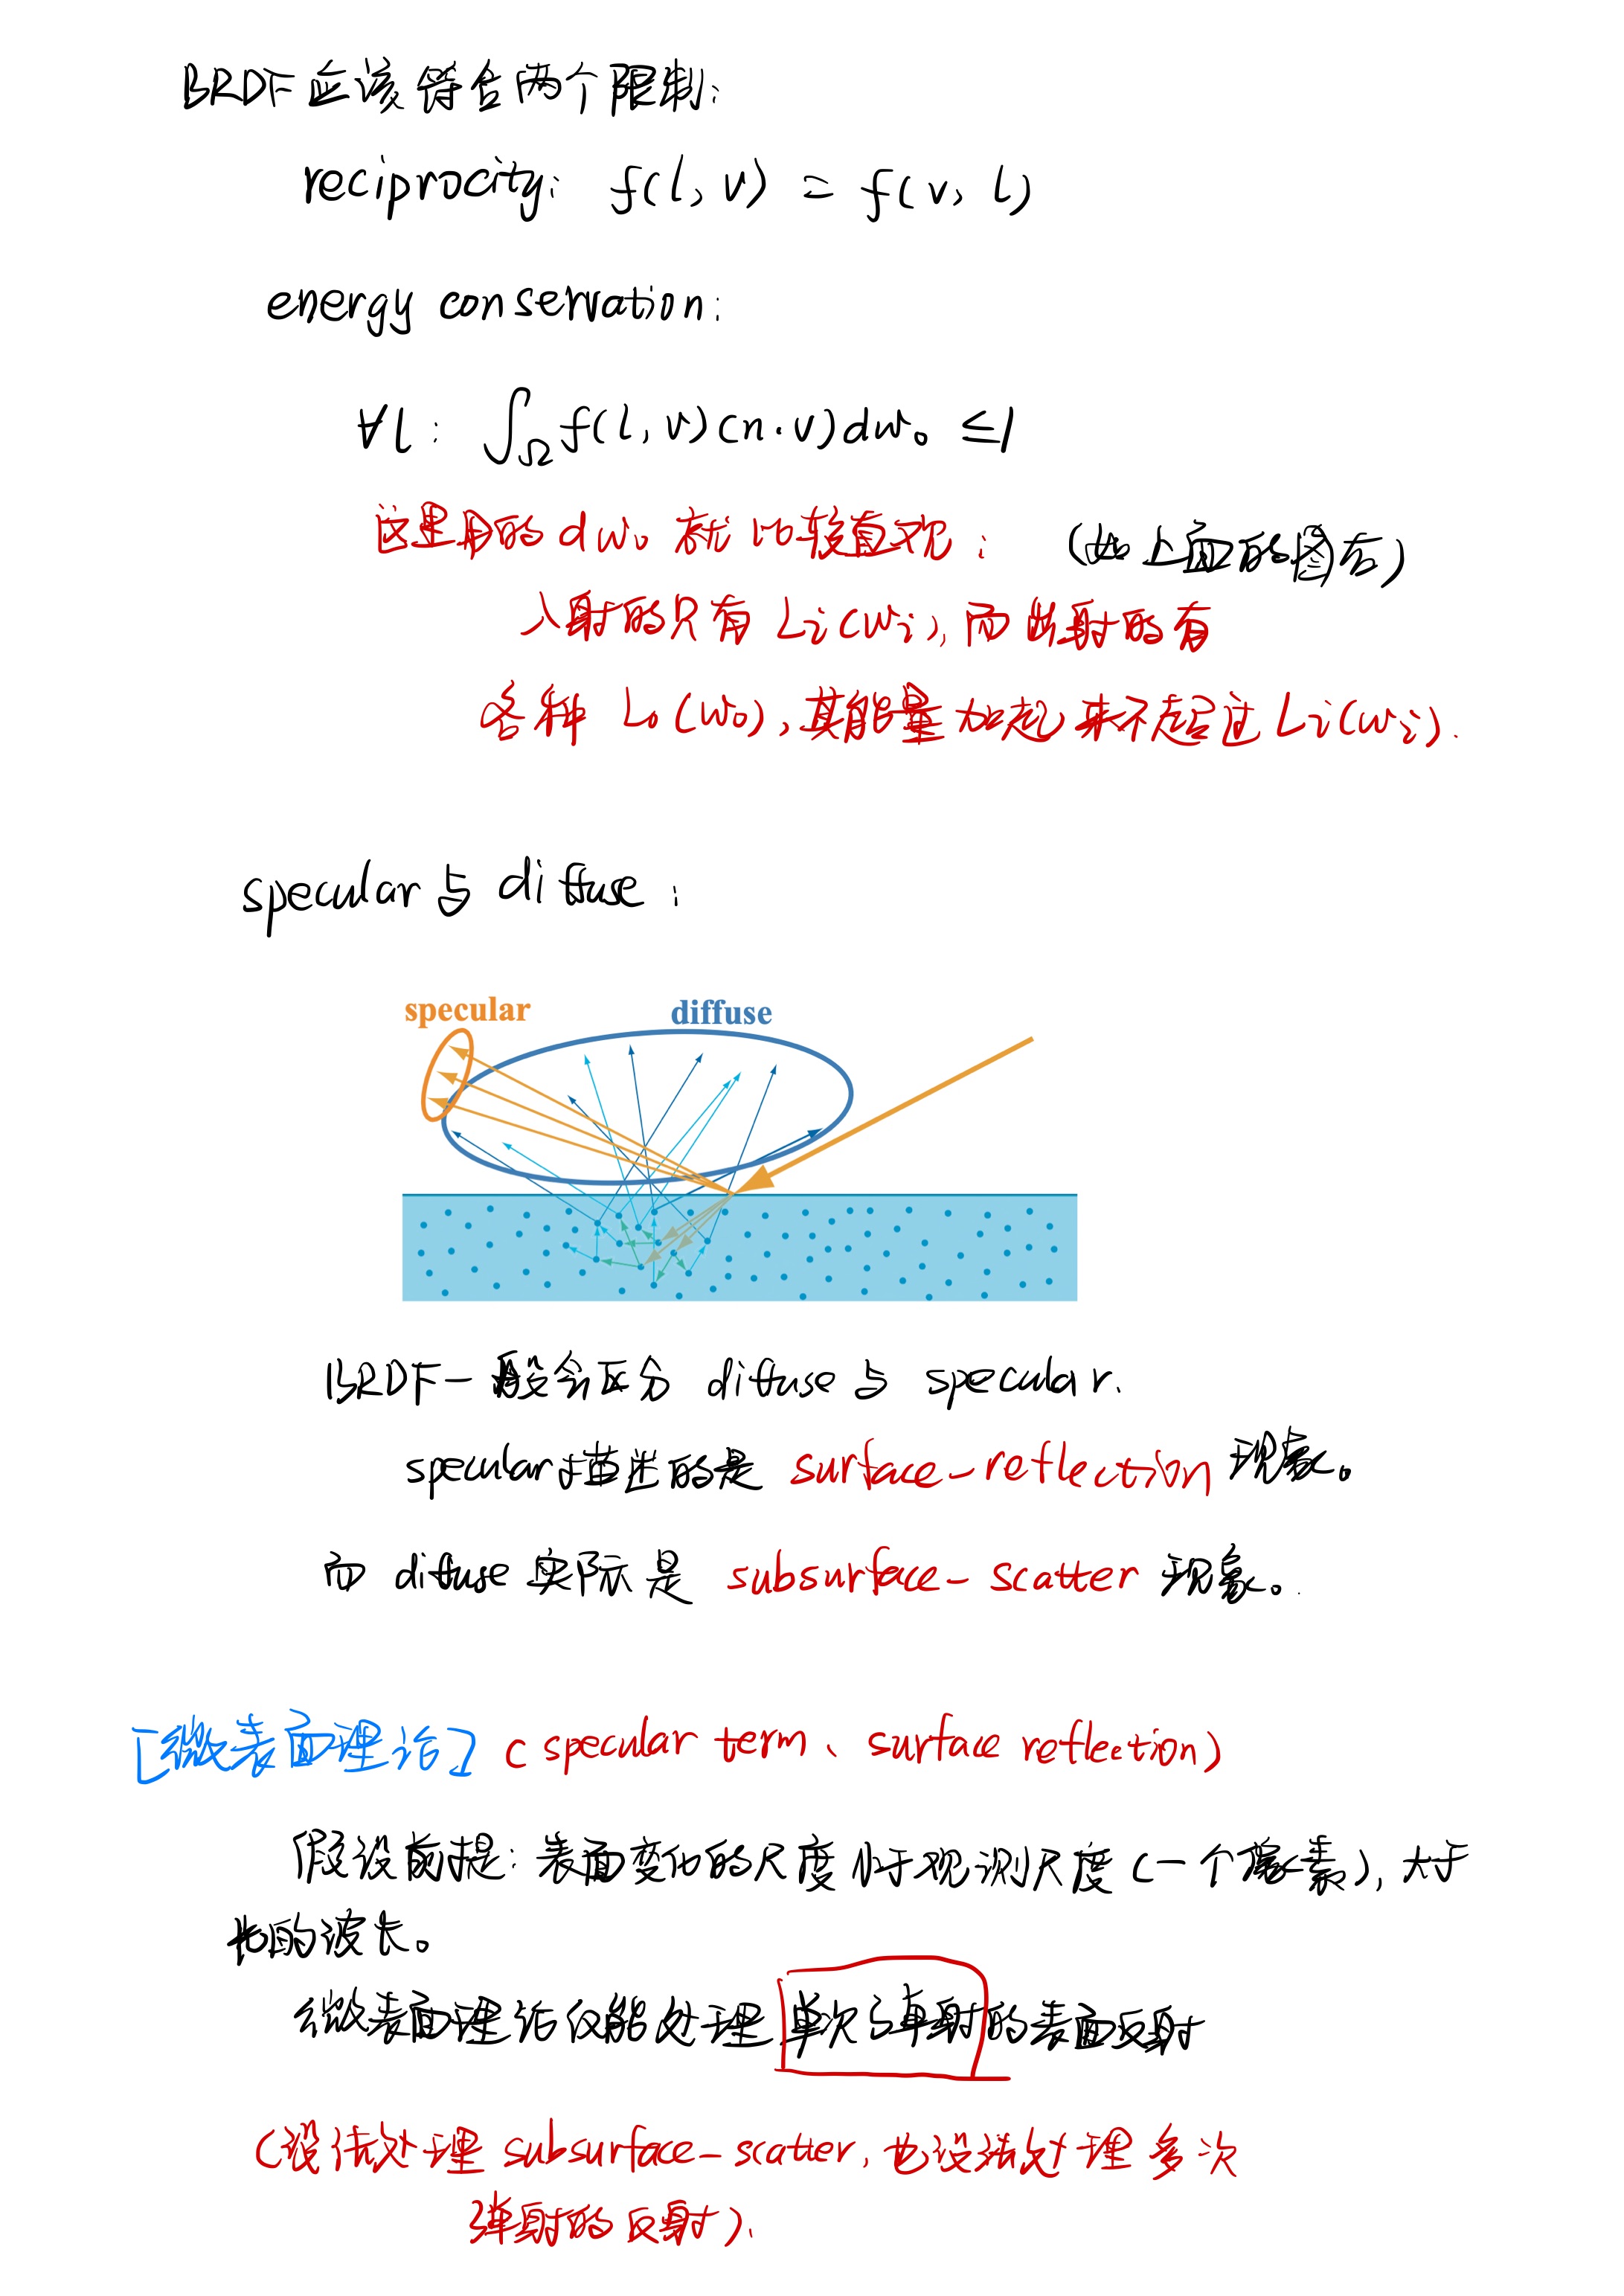 BRDF应该符合两个限制:
reciprocity: f(l, v) = f(v, l)
energy conservation:
∀l: ∫Ω f(l, v)(n·v)dωo ≤ 1
这里用的dωo就比较直观: (如上面的图右)
入射的只有Li(ωi),而出射的有
各种Lo(ωo),其能量加起来不超过Li(ωi).
specular与diffuse:
specular diffuse
BRDF一般会区分diffuse与specular.
specular描述的是surface-reflection现象。
而diffuse实际是subsurface-scatter现象。
[微表面理论](specular term、surface reflection)
假设前提:表面变化的尺度小于观测尺度(一个像素),大于
光的波长。
微表面理论仅能处理单次弹射的表面反射
(没法处理subsurface-scatter,也没法处理多次
弹射的反射).